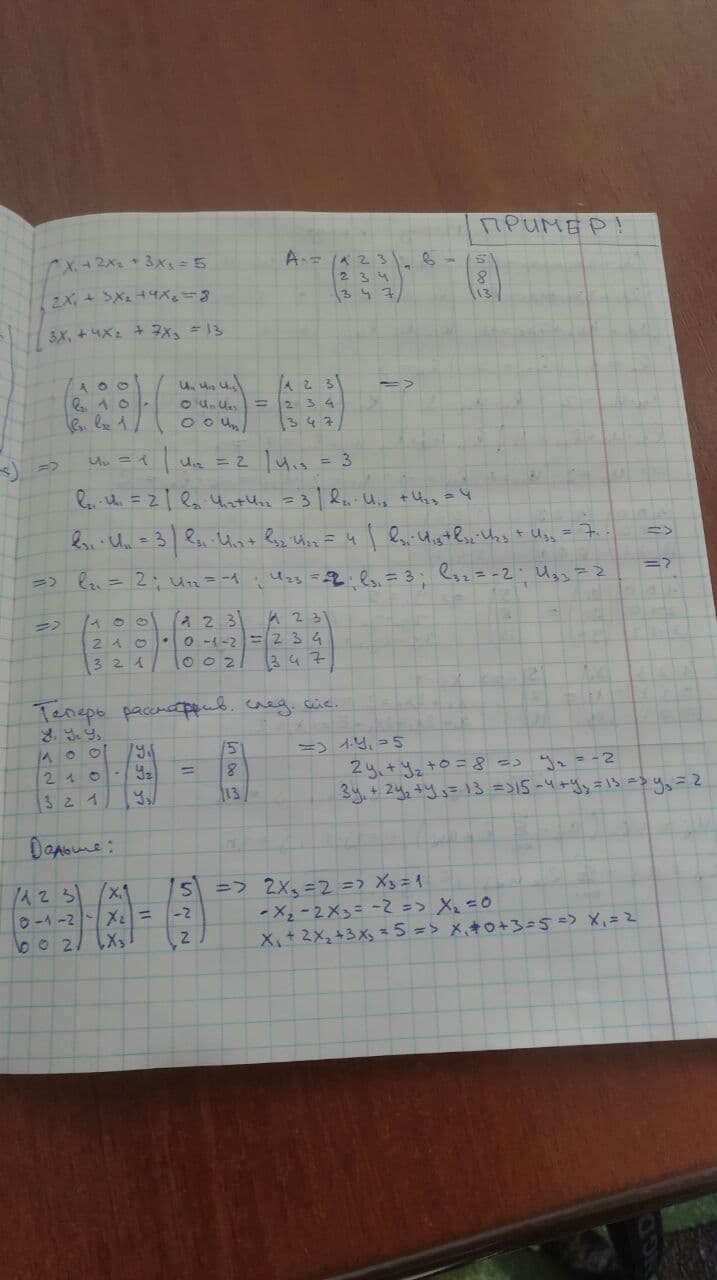 ПРИМЕР!
x₁ + 2x₂ + 3x₃ = 5
2x₁ + 3x₂ + 4x₃ = 8
3x₁ + 4x₂ + 7x₃ = 13
A = (1 2 3; 2 3 4; 3 4 7), b = (5; 8; 13)
(1 0 0; l₂₁ 1 0; l₃₁ l₃₂ 1) · (u₁₁ u₁₂ u₁₃; 0 u₂₂ u₂₃; 0 0 u₃₃) = (1 2 3; 2 3 4; 3 4 7) =>
=> u₁₁ = 1 | u₁₂ = 2 | u₁₃ = 3
l₂₁·u₁₁ = 2 | l₂₁·u₁₂ + u₂₂ = 3 | l₂₁·u₁₃ + u₂₃ = 4
l₃₁·u₁₁ = 3 | l₃₁·u₁₂ + l₃₂·u₂₂ = 4 | l₃₁·u₁₃ + l₃₂·u₂₃ + u₃₃ = 7 =>
=> l₂₁ = 2; u₂₂ = -1; u₂₃ = -2; l₃₁ = 3; l₃₂ = -2; u₃₃ = 2 =>
=> (1 0 0; 2 1 0; 3 2 1) · (1 2 3; 0 -1 -2; 0 0 2) = (1 2 3; 2 3 4; 3 4 7)
Теперь рассматрив. след. сис.
y₁ y₂ y₃
(1 0 0; 2 1 0; 3 2 1) · (y₁; y₂; y₃) = (5; 8; 13)
=> 1·y₁ = 5
2y₁ + y₂ + 0 = 8 => y₂ = -2
3y₁ + 2y₂ + y₃ = 13 => 15 - 4 + y₃ = 13 => y₃ = 2
Дальше:
(1 2 3; 0 -1 -2; 0 0 2) · (x₁; x₂; x₃) = (5; -2; 2)
=> 2x₃ = 2 => x₃ = 1
-x₂ - 2x₃ = -2 => x₂ = 0
x₁ + 2x₂ + 3x₃ = 5 => x₁ + 0 + 3 = 5 => x₁ = 2